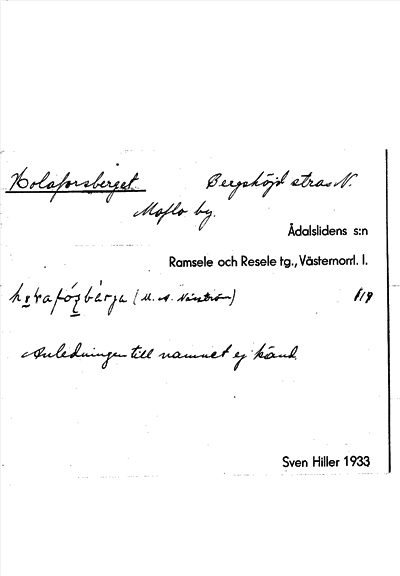 Holaforsberget. Bergshöjd strax N.
Moflo by.
Ådalslidens s:n
Ramsele och Resele tg., Västernorrl. l.
(M. A. Näsström) 8/9
Anledningen till namnet ej känd.
Sven Hiller 1933